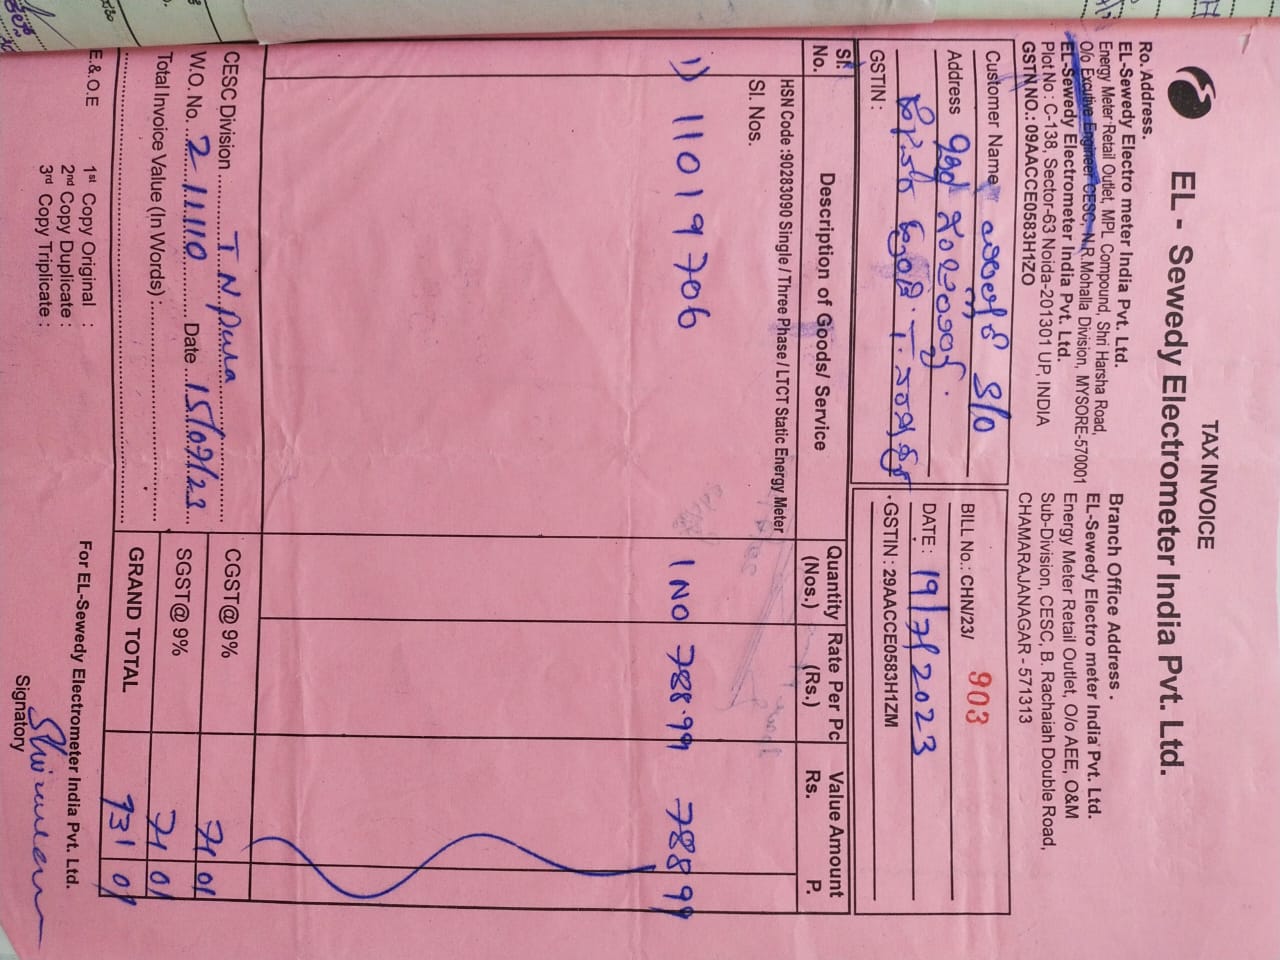 TAX INVOICE
EL - Sewedy Electrometer India Pvt. Ltd.
Ro. Address.
EL-Sewedy Electro meter India Pvt. Ltd.
Energy Meter Retail Outlet, MPL Compound, Shri Harsha Road,
O/o Excutive Engineer CESC, N.R.Mohalla Division, MYSORE-570001
EL-Sewedy Electrometer India Pvt. Ltd.
Plot No : C-138, Sector-63 Noida-201301 UP, INDIA
GSTN NO.: 09AACCE0583H1ZO
Branch Office Address .
EL-Sewedy Electro meter India Pvt. Ltd.
Energy Meter Retail Outlet, O/o AEE, O&M
Sub-Division, CESC, B. Rachaiah Double Road,
CHAMARAJANAGAR - 571313
Customer Name S/o
Address
GSTIN :
BILL No.: CHN/23/ 903
DATE : 19/7/2023
GSTIN : 29AACCE0583H1ZM
Sl. No. Description of Goods/ Service Quantity (Nos.) Rate Per Pc (Rs.) Value Amount Rs. P.
HSN Code :90283090 Single / Three Phase / LTCT Static Energy Meter
Sl. Nos.
1) 11019706 1 NO 788.99 788 99
CESC Division T N Pura
W.O. No. 211110 Date 15/07/23
Total Invoice Value (In Words) :
CGST@ 9% 71 01
SGST@ 9% 71 01
GRAND TOTAL 931 01
E.& O.E
1st Copy Original :
2nd Copy Duplicate :
3rd Copy Triplicate :
For EL-Sewedy Electrometer India Pvt. Ltd.
Signatory